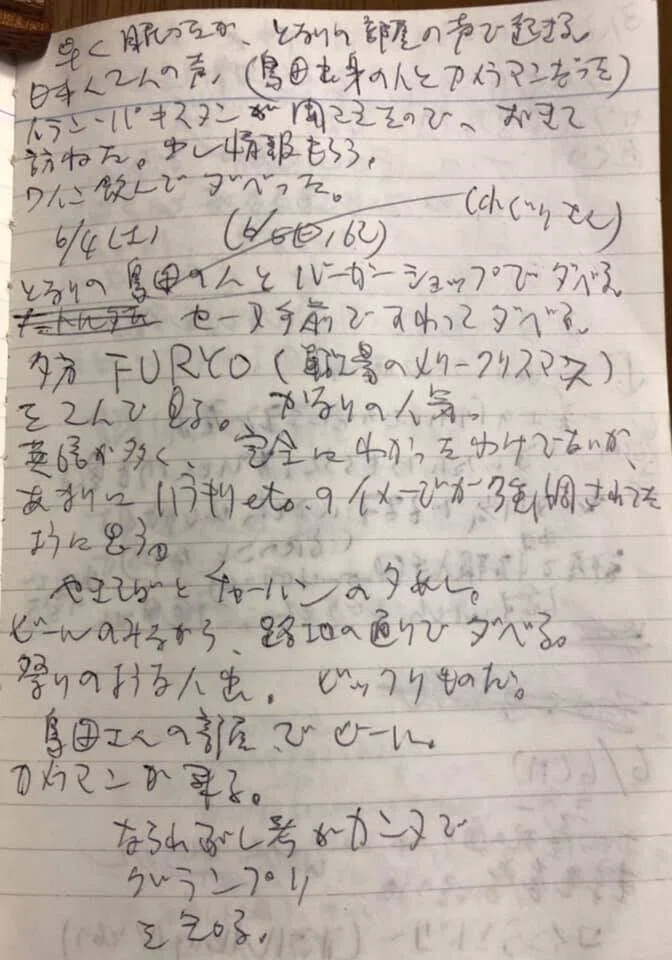 早く眠ったが、となりの部屋の声で起きる。
日本人2人の声、(島田出身の人とカメラマンだった)
イラン・パキスタンが聞こえたので、おきて
訪ねた。少し情報もらう。
ワイン飲んでダべった。
6/4(土) (6/5日, 162)
となりの島田の人とバーガーショップでダべる。
セーヌ手前ですわってダべる。
夕方 FURYO (戦場のメリークリスマス)
を2人で見る。かなりの人気。
英語が多く、完全にわかったわけでないが、
あまりにハラキリetc.のイメージが強調されてた
ように思う。
やきそばとチャーハンの夕めし。
ビールのみながら、路地の通りでダべる。
祭りのような人出。ビックリものだ。
島田さんの部屋でビール。
カメラマンが来る。
ならやまぶし考がカンヌで
グランプリ
を知る。